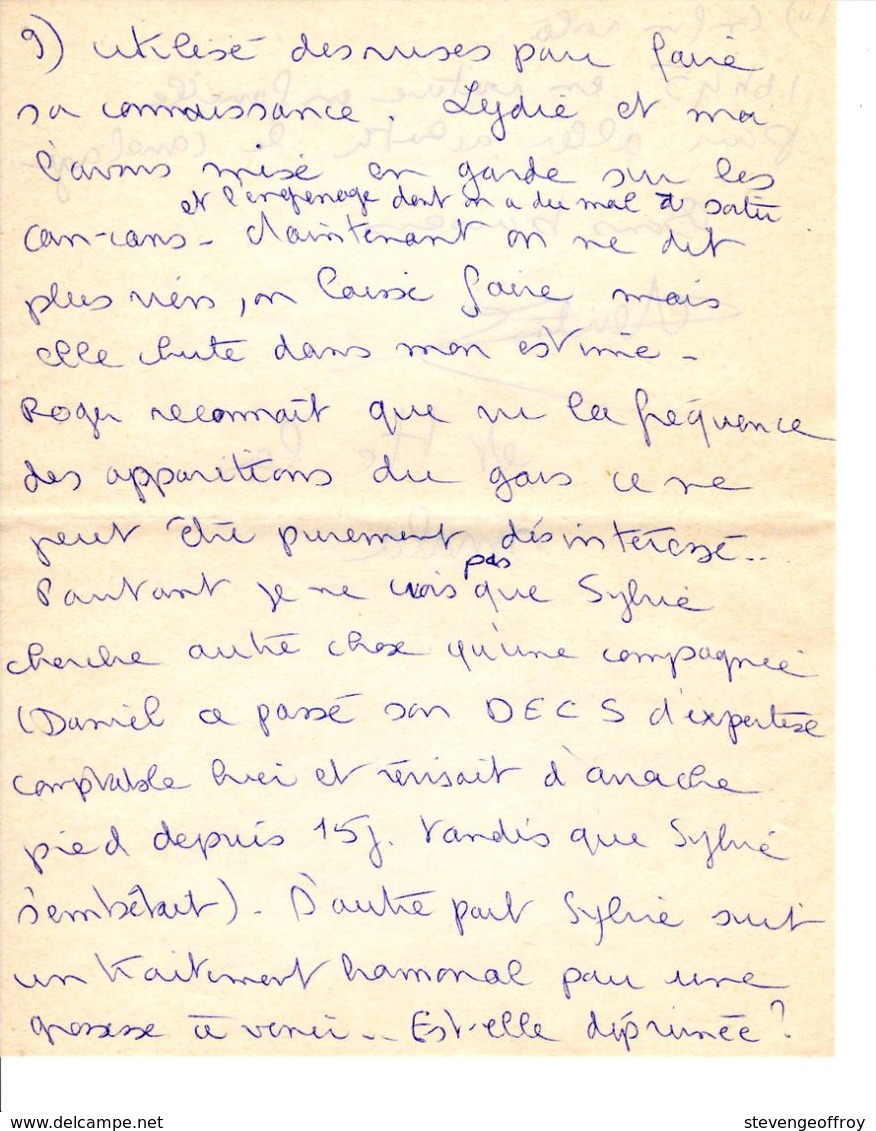 9) utilisé des ruses pour faire
sa connaissance. Lydie et moi
l'avons mise en garde sur les
et l'engrenage dont on a du mal à sortir
can-cans - Maintenant on ne dit
plus rien, on laisse faire mais
elle chute dans mon estime -
Roger reconnaît que vu la fréquence
des apparitions du gars ce ne
peut être purement désintéressé..
Pourtant je ne crois pas que Sylvie
cherche autre chose qu'une compagnie
(Daniel a passé son DECS d'expertise
comptable hier et révisait d'arrache
pied depuis 15j. tandis que Sylvie
s'embêtait). D'autre part Sylvie suit
un traitement hormonal pour une
grossesse à venir .. Est-elle déprimée?
delcampe.net
stevengeoffroy